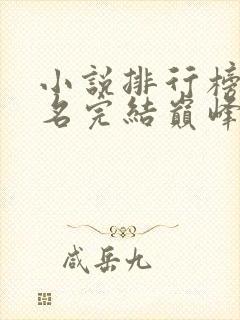 小説排行榜
名完結巔峰
咸岳九